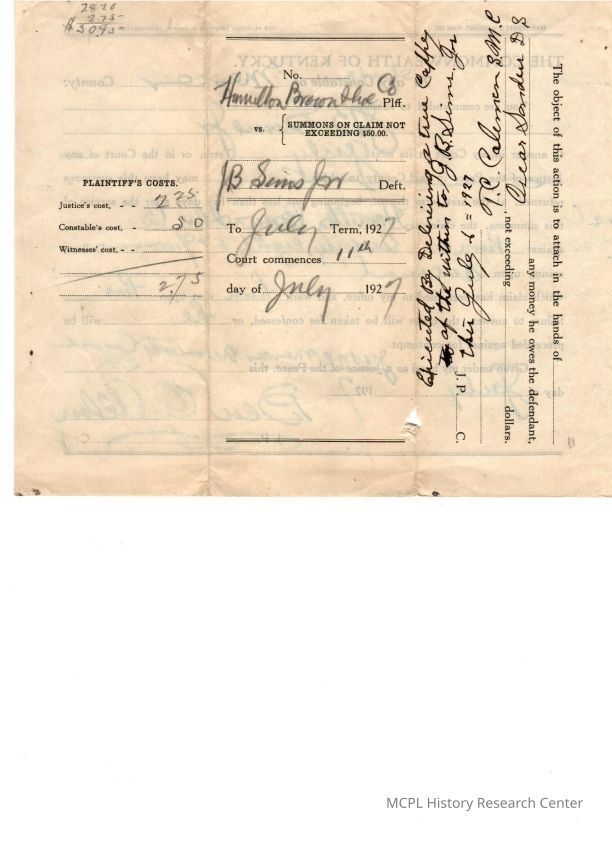 2820
275
$3095
No.
Hamilton Brown Shoe Co Plff.
vs. SUMMONS ON CLAIM NOT
EXCEEDING $50.00.
JB Sims Jnr Deft.
To July Term, 1927
Court commences 11th
day of July 1927
PLAINTIFF'S COSTS.
Justice's cost, - - 2 25
Constable's cost, - 50
Witnesses' cost, - -
2,75
Executed By Delivering a true Coppy
of the within to J.B. Sims Jr
this July 6 = 1927
T.C. Coleman S.M.C
Oscar Sanders D S
The object of this action is to attach in the hands of
any money he owes the defendant,
not exceeding dollars.
J. P. C.
MCPL History Research Center